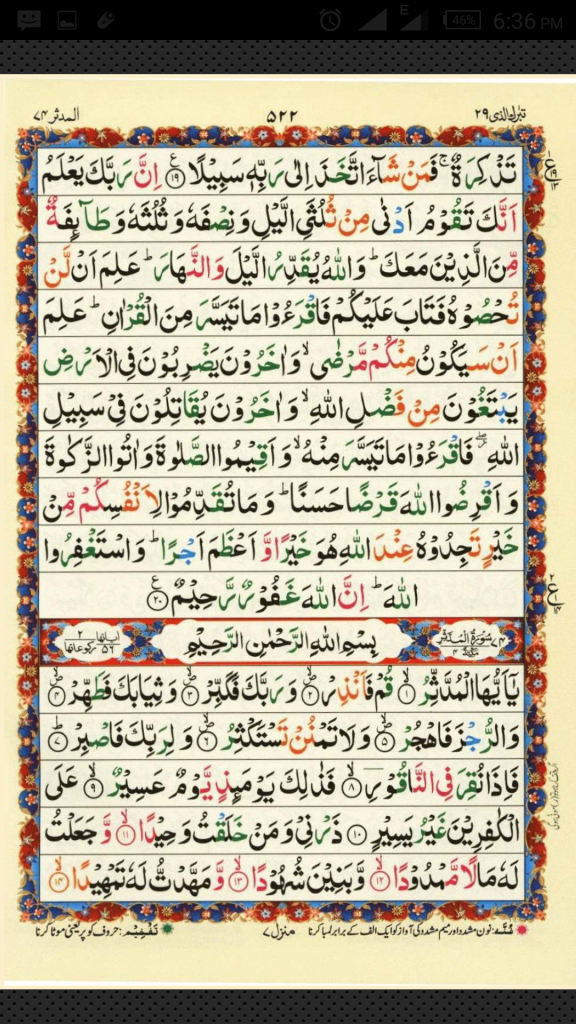 E 46% 6:36 PM
تبٰرك الذی ۲۹ ۵۲۲ المدثر ۷۴
تَذْكِرَةٌ ۚ فَمَنْ شَآءَ اتَّخَذَ اِلٰى رَبِّهٖ سَبِيْلًا ۟ۧ ۱۹ اِنَّ رَبَّكَ يَعْلَمُ
اَنَّكَ تَقُوْمُ اَدْنٰى مِنْ ثُلُثَيِ الَّيْلِ وَنِصْفَهٗ وَثُلُثَهٗ وَطَآئِفَةٌ
مِّنَ الَّذِيْنَ مَعَكَ ؕ وَاللّٰهُ يُقَدِّرُ الَّيْلَ وَالنَّهَارَ ؕ عَلِمَ اَنْ لَّنْ
تُحْصُوْهُ فَتَابَ عَلَيْكُمْ فَاقْرَءُوْا مَا تَيَسَّرَ مِنَ الْقُرْاٰنِ ؕ عَلِمَ
اَنْ سَيَكُوْنُ مِنْكُمْ مَّرْضٰى ۙ وَاٰخَرُوْنَ يَضْرِبُوْنَ فِى الْاَرْضِ
يَبْتَغُوْنَ مِنْ فَضْلِ اللّٰهِ ۙ وَاٰخَرُوْنَ يُقَاتِلُوْنَ فِىْ سَبِيْلِ
اللّٰهِ ۖ فَاقْرَءُوْا مَا تَيَسَّرَ مِنْهُ ۙ وَاَقِيْمُوا الصَّلٰوةَ وَاٰتُوا الزَّكٰوةَ
وَاَقْرِضُوا اللّٰهَ قَرْضًا حَسَنًا ؕ وَمَا تُقَدِّمُوْا لِاَنْفُسِكُمْ مِّنْ
خَيْرٍ تَجِدُوْهُ عِنْدَ اللّٰهِ هُوَ خَيْرًا وَّاَعْظَمَ اَجْرًا ؕ وَاسْتَغْفِرُوا
اللّٰهَ ؕ اِنَّ اللّٰهَ غَفُوْرٌ رَّحِيْمٌ ۲۰
۷۴ سُوْرَةُ الْمُدَّثِّرِ مَكِّيَّةٌ ۴ بِسْمِ اللّٰهِ الرَّحْمٰنِ الرَّحِيْمِ اٰيَاتُهَا ۵۶ رُكُوْعَاتُهَا ۲
يٰۤاَيُّهَا الْمُدَّثِّرُ ۙ۱ قُمْ فَاَنْذِرْ ۪ۙ۲ وَرَبَّكَ فَكَبِّرْ ۪ۙ۳ وَثِيَابَكَ فَطَهِّرْ ۪ۙ۴
وَالرُّجْزَ فَاهْجُرْ ۪ۙ۵ وَلَا تَمْنُنْ تَسْتَكْثِرُ ۪ۙ۶ وَلِرَبِّكَ فَاصْبِرْ ؕ۷
فَاِذَا نُقِرَ فِى النَّاقُوْرِ ۙ۸ فَذٰلِكَ يَوْمَئِذٍ يَّوْمٌ عَسِيْرٌ ۙ۹ عَلَى
الْكٰفِرِيْنَ غَيْرُ يَسِيْرٍ ۱۰ ذَرْنِىْ وَمَنْ خَلَقْتُ وَحِيْدًا ۙ۱۱ وَّجَعَلْتُ
لَهٗ مَالًا مَّمْدُوْدًا ۙ۱۲ وَّبَنِيْنَ شُهُوْدًا ۙ۱۳ وَّمَهَّدْتُّ لَهٗ تَمْهِيْدًا ۙ۱۴
غُنَّہ: نون مشدد اور میم مشدد کی آواز کو ایک الف کے برابر لمبا کرنا منزل ۷ تَفْخِیْم: حروف کو پُر یعنی موٹا کرنا